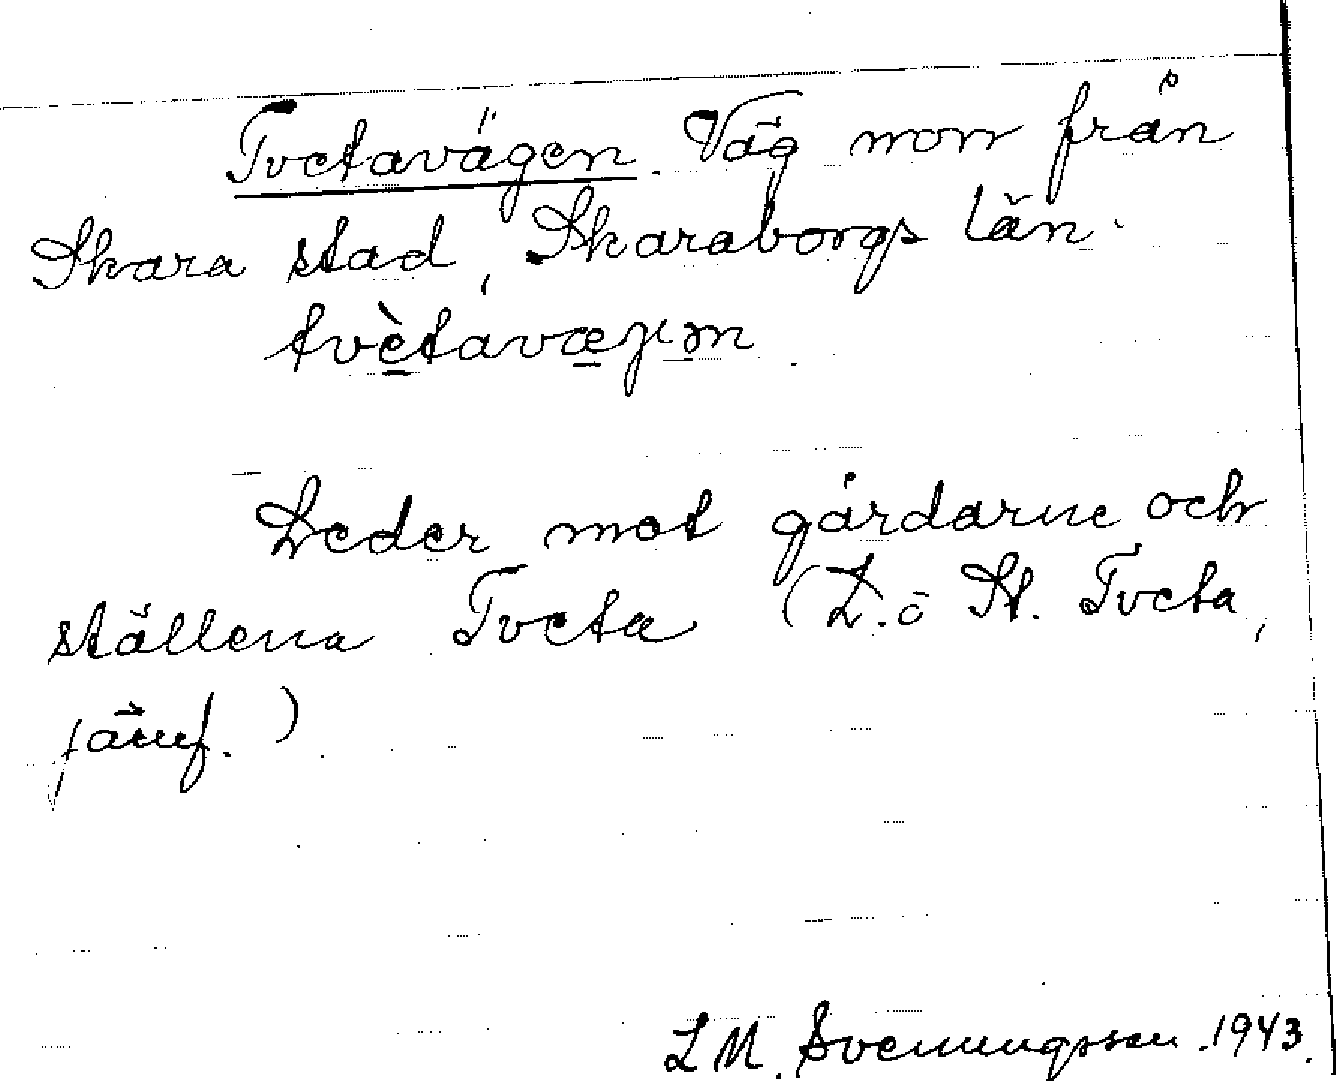 Tvetavägen. Väg norr från
Skara stad, Skaraborgs län.
tvètávæɡɩn
Leder mot gårdarne och
ställena Tveta (L. o St. Tveta,
jämf.)
L M. Svenungsson. 1943.